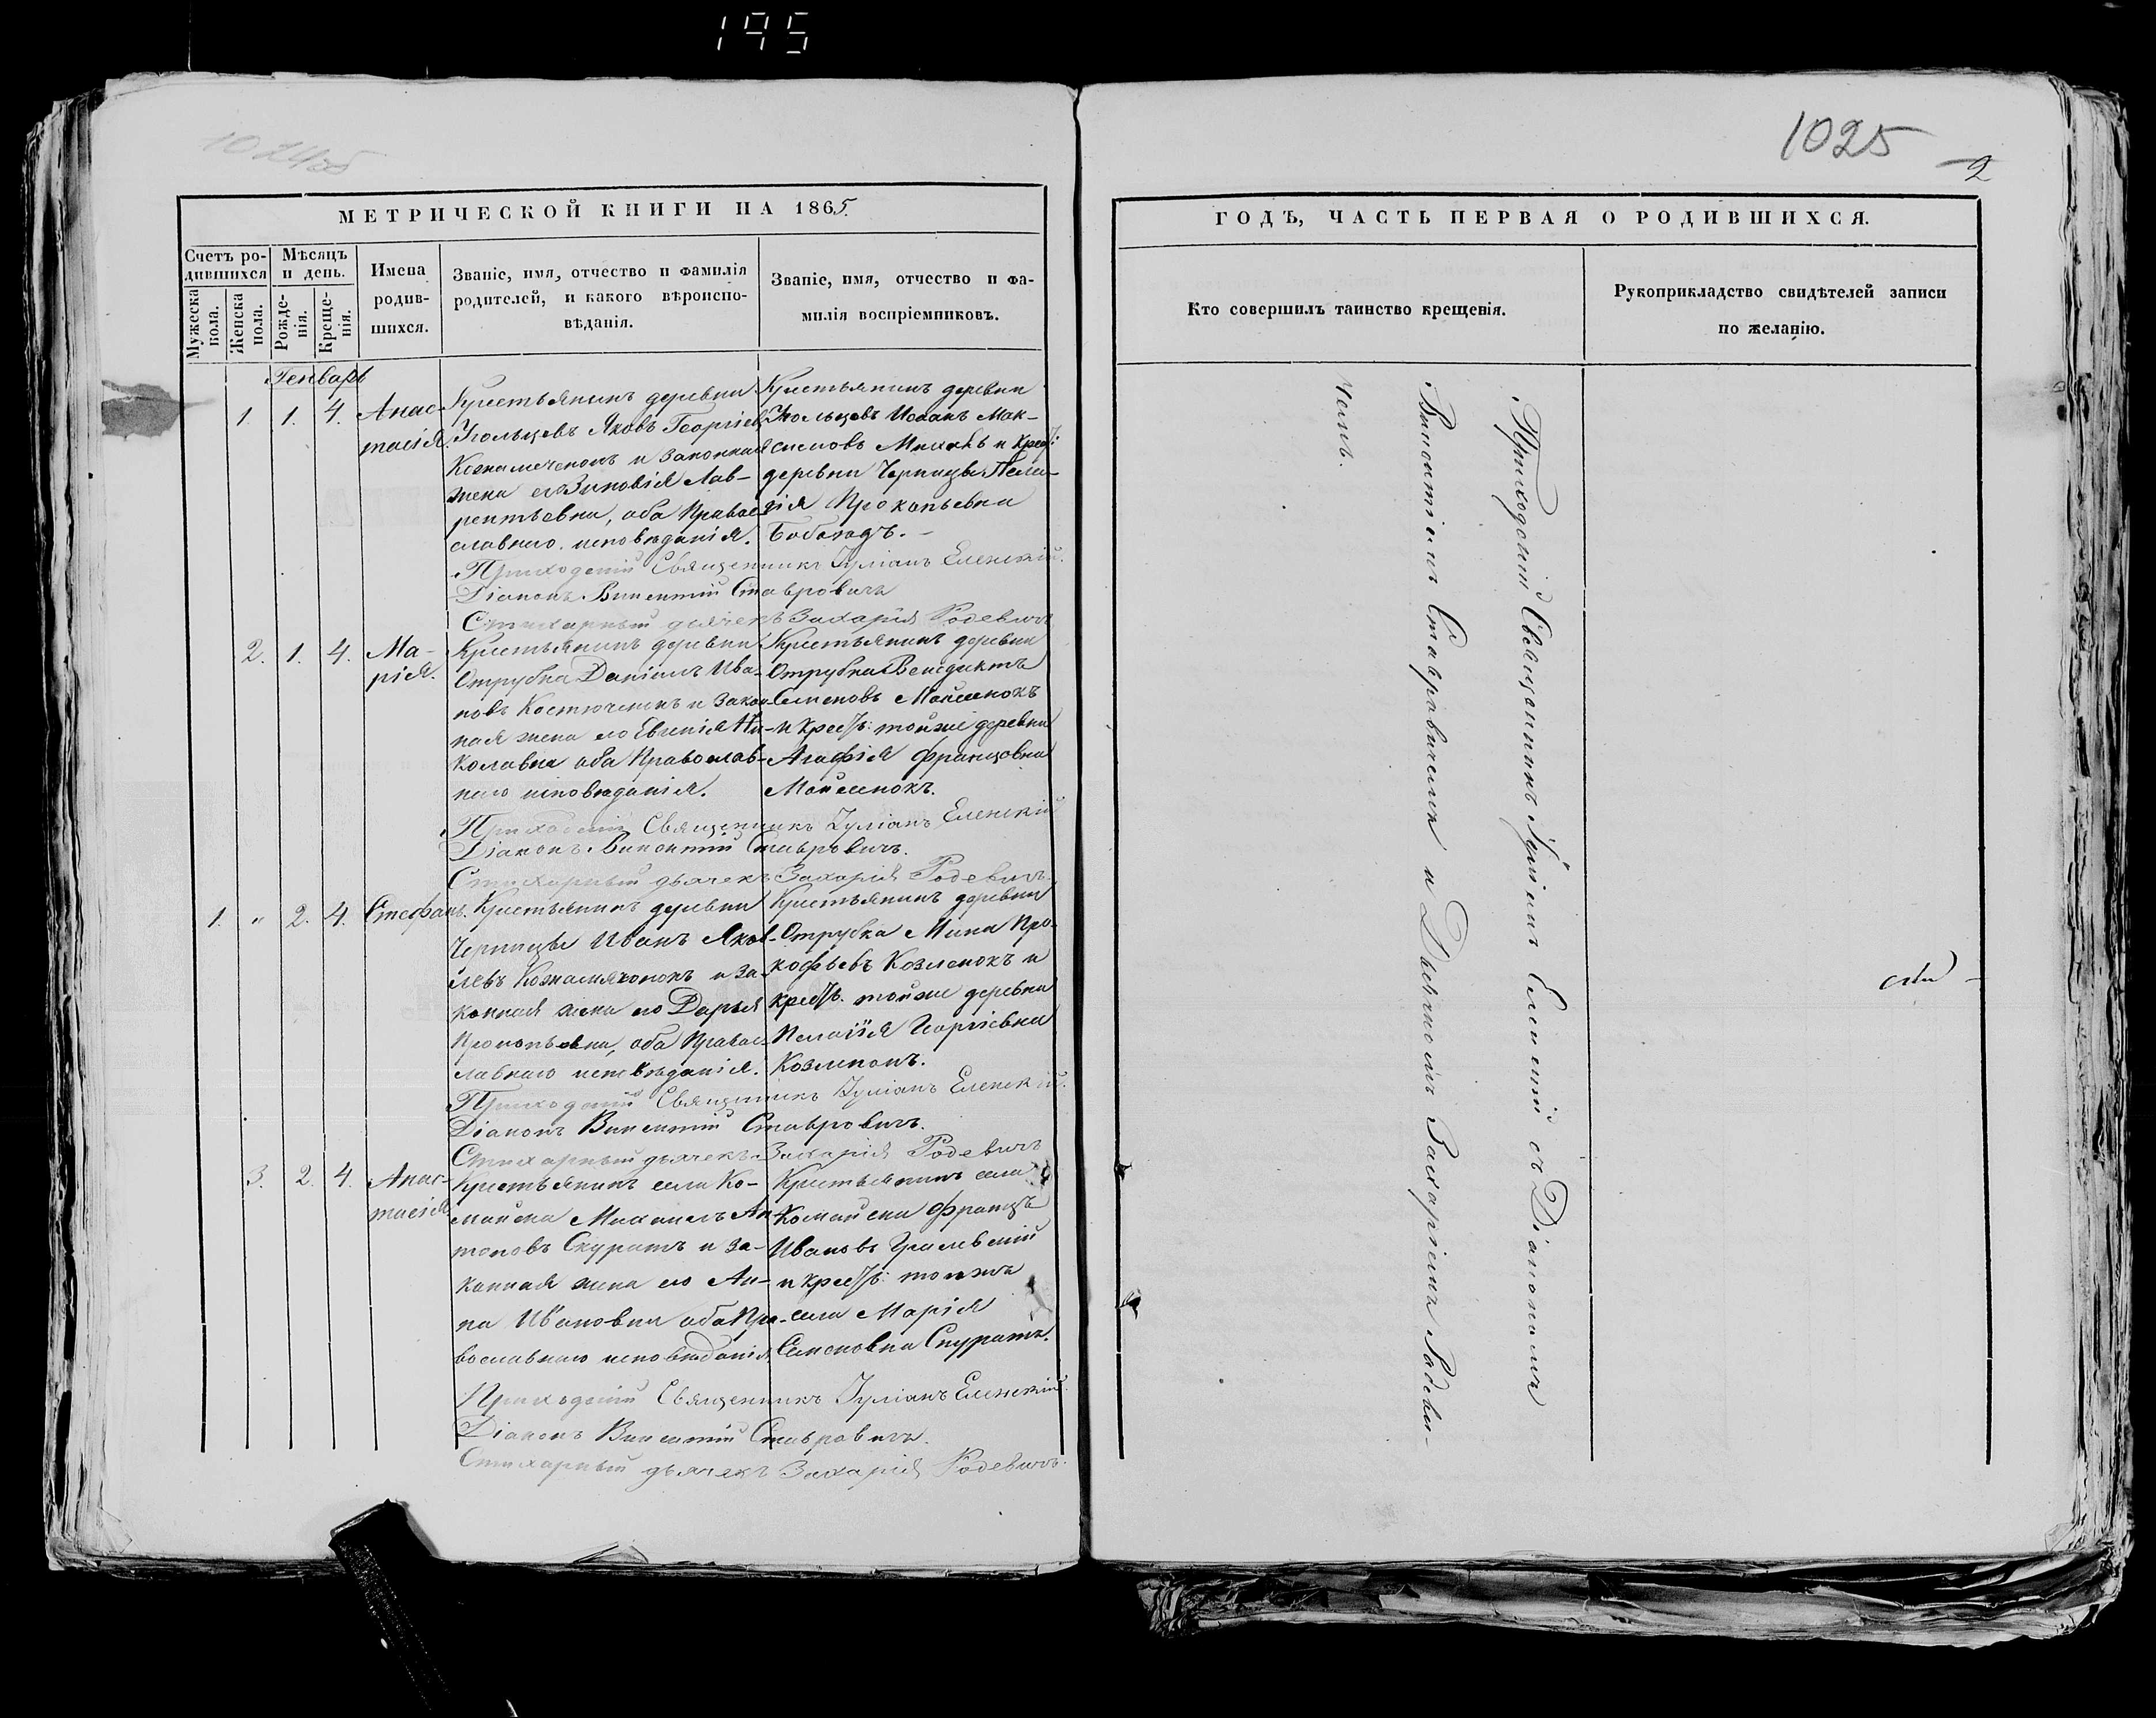 195
1024об
1025
2
МЕТРИЧЕСКОЙ КНИГИ НА 1865.
Счетъ родившихся
Мужеска пола.
Женска пола.
Мѣсяцъ и день.
Рожденія.
Крещенія.
Имена родившихся.
Званіе, имя, отчество и фамилія
родителей, и какого вѣроиспо-
вѣданія.
Званіе, имя, отчество и фа-
милія воспріемниковъ.
Генварь
1. 1. 4. Анас-
тасія.
Крестьянинъ деревни
Угольцевъ Яковъ Георгіевъ
и законная
жена его Зиновія Лав-
рентьевна, оба Право-
славнаго исповѣданія.
Крестьянинъ деревни
Угольцевъ Иоанъ Мак-
симовъ и крест:
деревни Черницы Пела-
гія Прокопьевна
Бобоѣдъ.
Приходскій Священникъ Іуліанъ Еленскій.
Діаконъ Викентій Ставровичъ
Стихарный дьячекъ Захарія Родевичъ
2. 1. 4. Ма-
рія.
Крестьянинъ деревни
Отрубка Даніилъ Ива-
новъ и закон-
ная жена его Евгенія Ни-
колаевна оба Православ-
наго исповѣданія.
Крестьянинъ деревни
Отрубка Венедиктъ
Семеновъ Мойсенокъ
и крест: тойже деревни
Агафія Францовна
Мойсенокъ.
Приходскій Священникъ Іуліанъ Еленскій
Діаконъ Викентій Ставровичъ.
Стихарный дьячекъ Захарія Родевичъ.
1. " 2. 4. Стефанъ.
Крестьянинъ деревни
Черницы Иванъ Яков-
левъ Кожемяконокъ и за-
конная жена его Дарья
Прокопьевна, оба Право-
славнаго исповѣданія.
Крестьянинъ деревни
Отрубка Мина Про-
кофьевъ Козленокъ и
крест: тойже деревни
Пелагія Георгіевна
Козленокъ.
Приходскій Священникъ Іуліанъ Еленскій.
Діаконъ Викентій Ставровичъ.
Стихарный дьячекъ Захарія Родевичъ
3. 2. 4. Анас-
тасія
Крестьянинъ села Ко-
майска Михаилъ Ан-
тоновъ Скуратъ и за-
конная жена его Ан-
на Ивановна оба Пра-
вославнаго исповѣданія
Крестьянинъ села
Комайска Францъ
Ивановъ
и крест: тогоже
села Марія
Семеновна Скуратъ.
Приходскій Священникъ Іуліанъ Еленскій.
Діаконъ Викентій Ставровичъ.
Стихарный дьячекъ Захарія Родевичъ.
ГОДЪ, ЧАСТЬ ПЕРВАЯ О РОДИВШИХСЯ.
Кто совершилъ таинство крещенія.
Рукоприкладство свидѣтелей записи
по желанію.
Приходскій Священникъ Іуліанъ Еленскій съ Діакономъ
Викентіемъ Ставровичемъ и Дьячкомъ Захаріемъ Родеви-
чемъ.